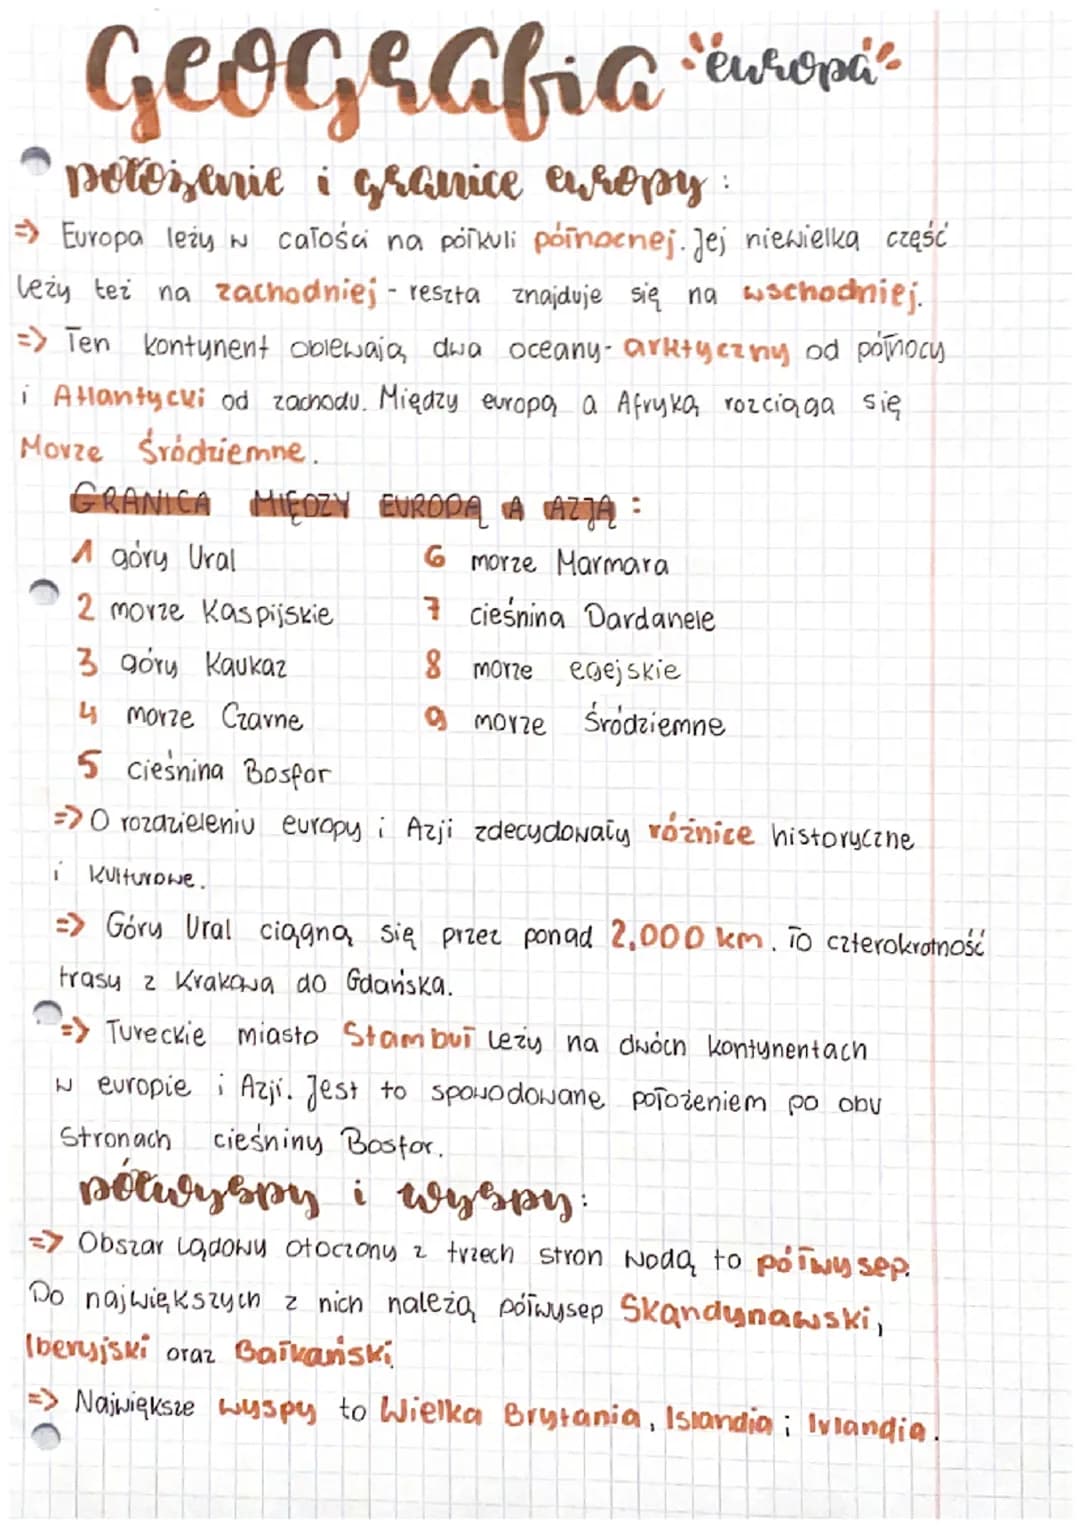 Geografia europa
położenie i granice europy:
=> Europa leży w całości na półkuli północnej. Jej niewielka część
leży też na zachodniej - reszta znajduje się na wschodniej.
=> Ten kontynent oblewają dwa oceany - arktyczny od północy
i Atlantycki od zachodu. Między europą a Afryką rozciąga się
Morze Śródziemne.
GRANICA MIĘDZY EUROPĄ A AZJĄ:
1 góry Ural
2 morze Kaspijskie
3 góry Kaukaz
4 morze Czarne
5 cieśnina Bosfor
6 morze Marmara
7 cieśnina Dardanele
8 morze egejskie
9 morze Śródziemne
=> O rozdzieleniu europy i Azji zdecydowały różnice historyczne
i kulturowe.
=> Góry Ural ciągną się przez ponad 2,000 km. To czterokrotność
trasy z Krakowa do Gdańska.
=> Tureckie miasto Stambuł leży na dwóch kontynentach
w europie i Azji. Jest to spowodowane położeniem po obu
Stronach cieśniny Bosfor.
półwyspy i wyspy:
=> Obszar lądowy otoczony z trzech stron wodą to półwysep.
Do największych z nich należą półwysep Skandynawski,
Iberyjski oraz Bałkański.
=> Największe wyspy to Wielka Brytania, Islandia i Irlandia.